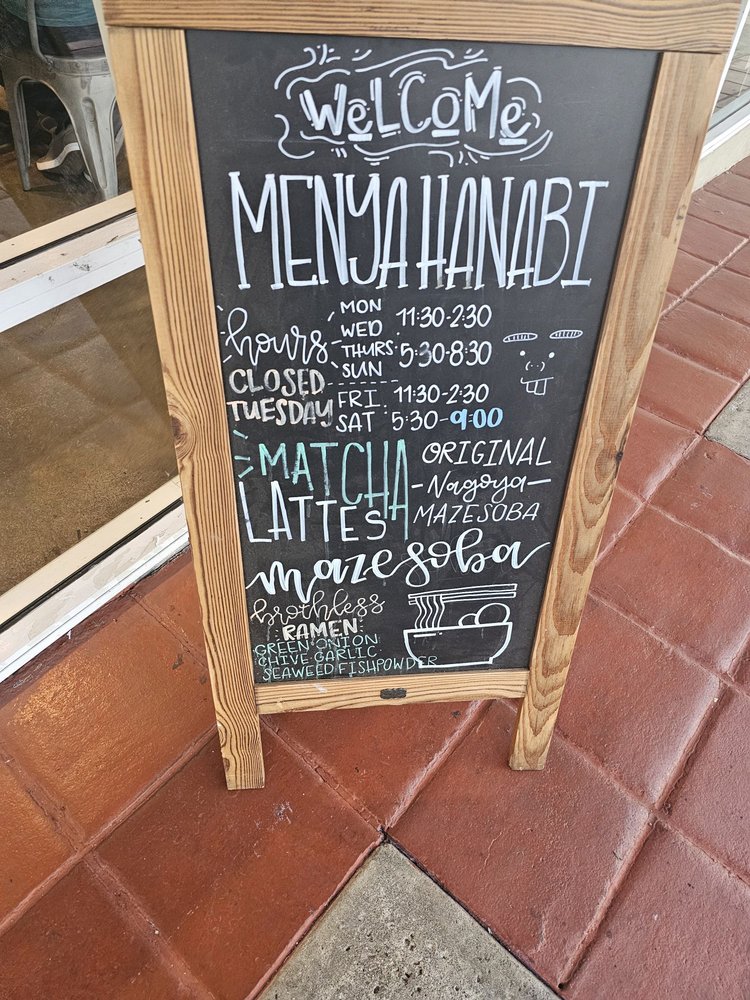 WeLCoMe
MENYA HANABI
hours
MON
WED
THURS
SUN
11:30-2:30
5:30-8:30
CLOSED
TUESDAY
FRI 11:30-2:30
SAT 5:30-9:00
MATCHA
LATTES
ORIGINAL
-Nagoya-
MAZESOBA
mazesoba
brothless
RAMEN
GREEN ONION
CHIVE GARLIC
SEAWEED FISHPOWDER